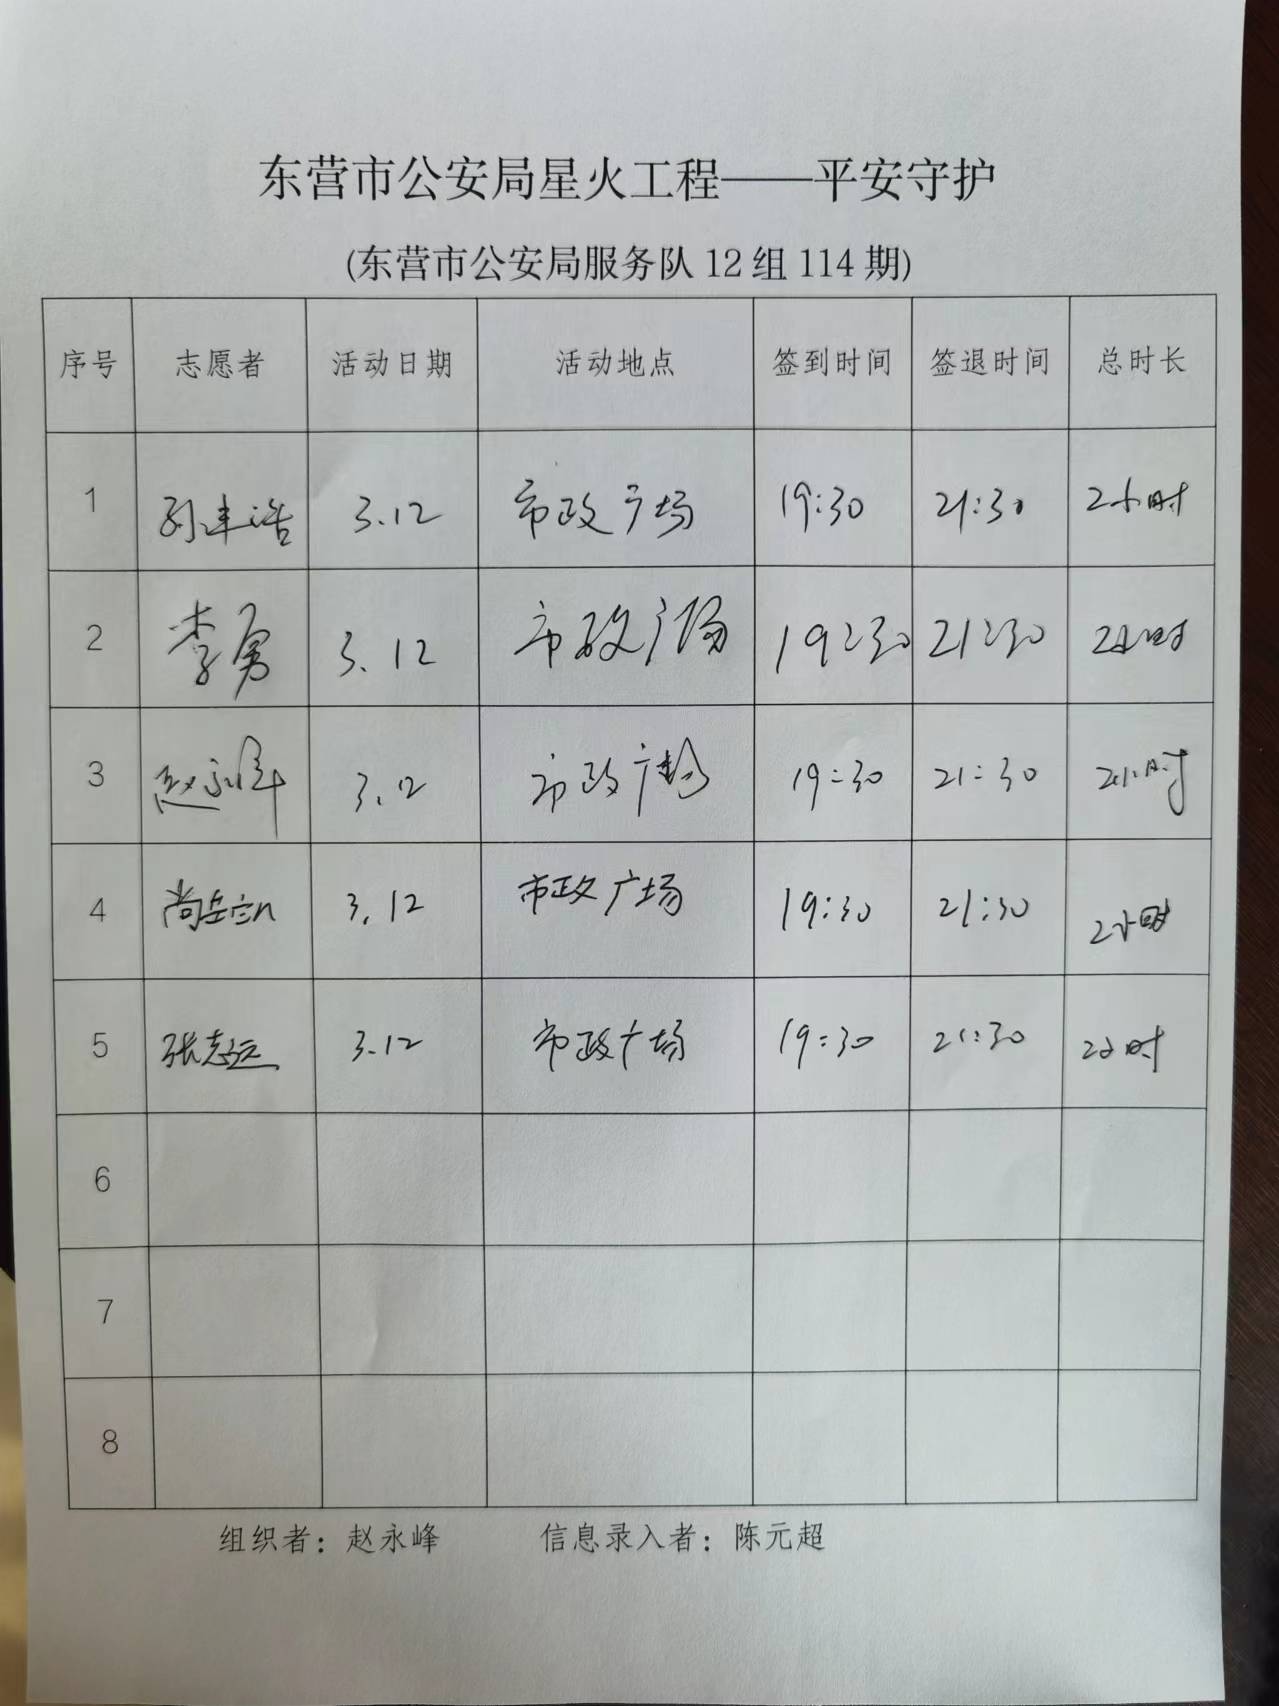 东营市公安局星火工程——平安守护
(东营市公安局服务队12组114期)
序号 志愿者 活动日期 活动地点 签到时间 签退时间 总时长
1 3.12 市政广场 19:30 21:30 2小时
2 李勇 3.12 市政广场 19:30 21:30 2小时
3 赵永峰 3.12 市政广场 19:30 21:30 2小时
4 3.12 市政广场 19:30 21:30 2小时
5 张志远 3.12 市政广场 19:30 21:30 2小时
6
7
8
组织者：赵永峰 信息录入者：陈元超